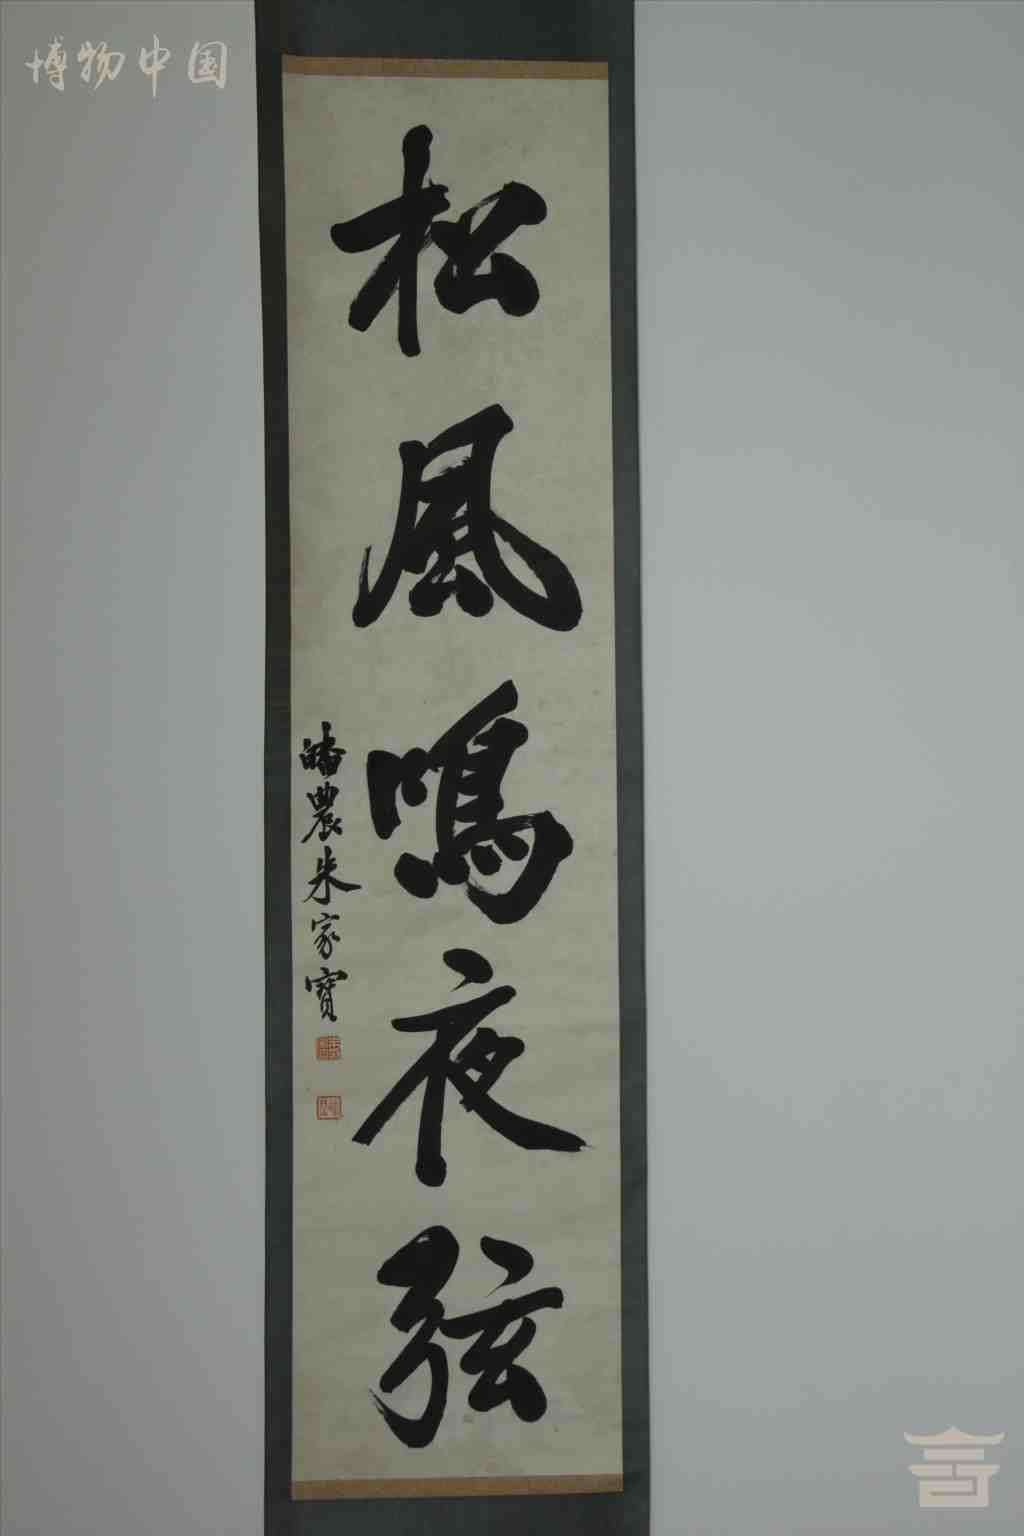 博物中国
松風鳴夜弦
皤農朱家寶